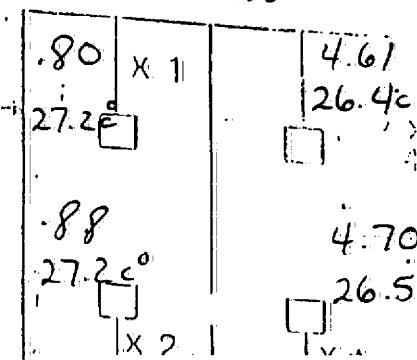 .80 X 1 4.61
27.2c° 26.4c
.88 4.70
27.2c° 26.5
X 2